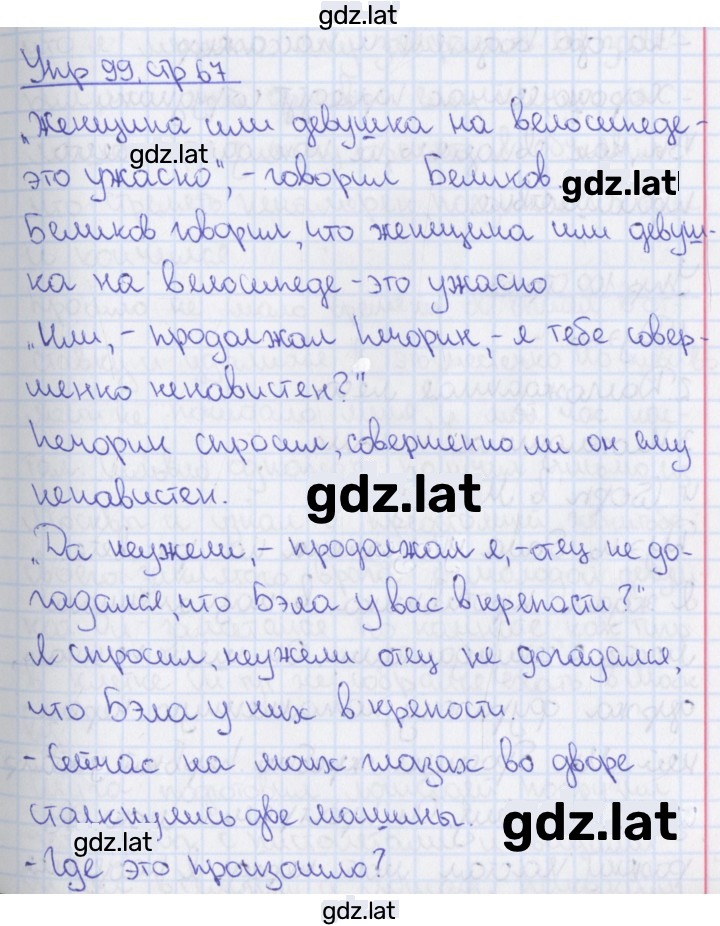 gdz.lat
Упр 99, стр 67
„Женщина или девушка на велосипеде -
gdz.lat
это ужасно", - говорил Беликов.
gdz.lat
Беликов говорил, что женщина или девуш-
ка на велосипеде - это ужасно
„Или, - продолжал Печорин, - я тебе совер-
шенно ненавистен?"
Печорин спросил, совершенно ли он ему
ненавистен.
gdz.lat
„Да неужели, - продолжал я, - отец не до-
гадался, что Бэла у вас в крепости?"
Я спросил, неужели отец не догадался,
что Бэла у них в крепости.
- Сейчас на моих глазах во дворе
столкнулись две машины.
gdz.lat
gdz.lat
- Где это произошло?
gdz.lat